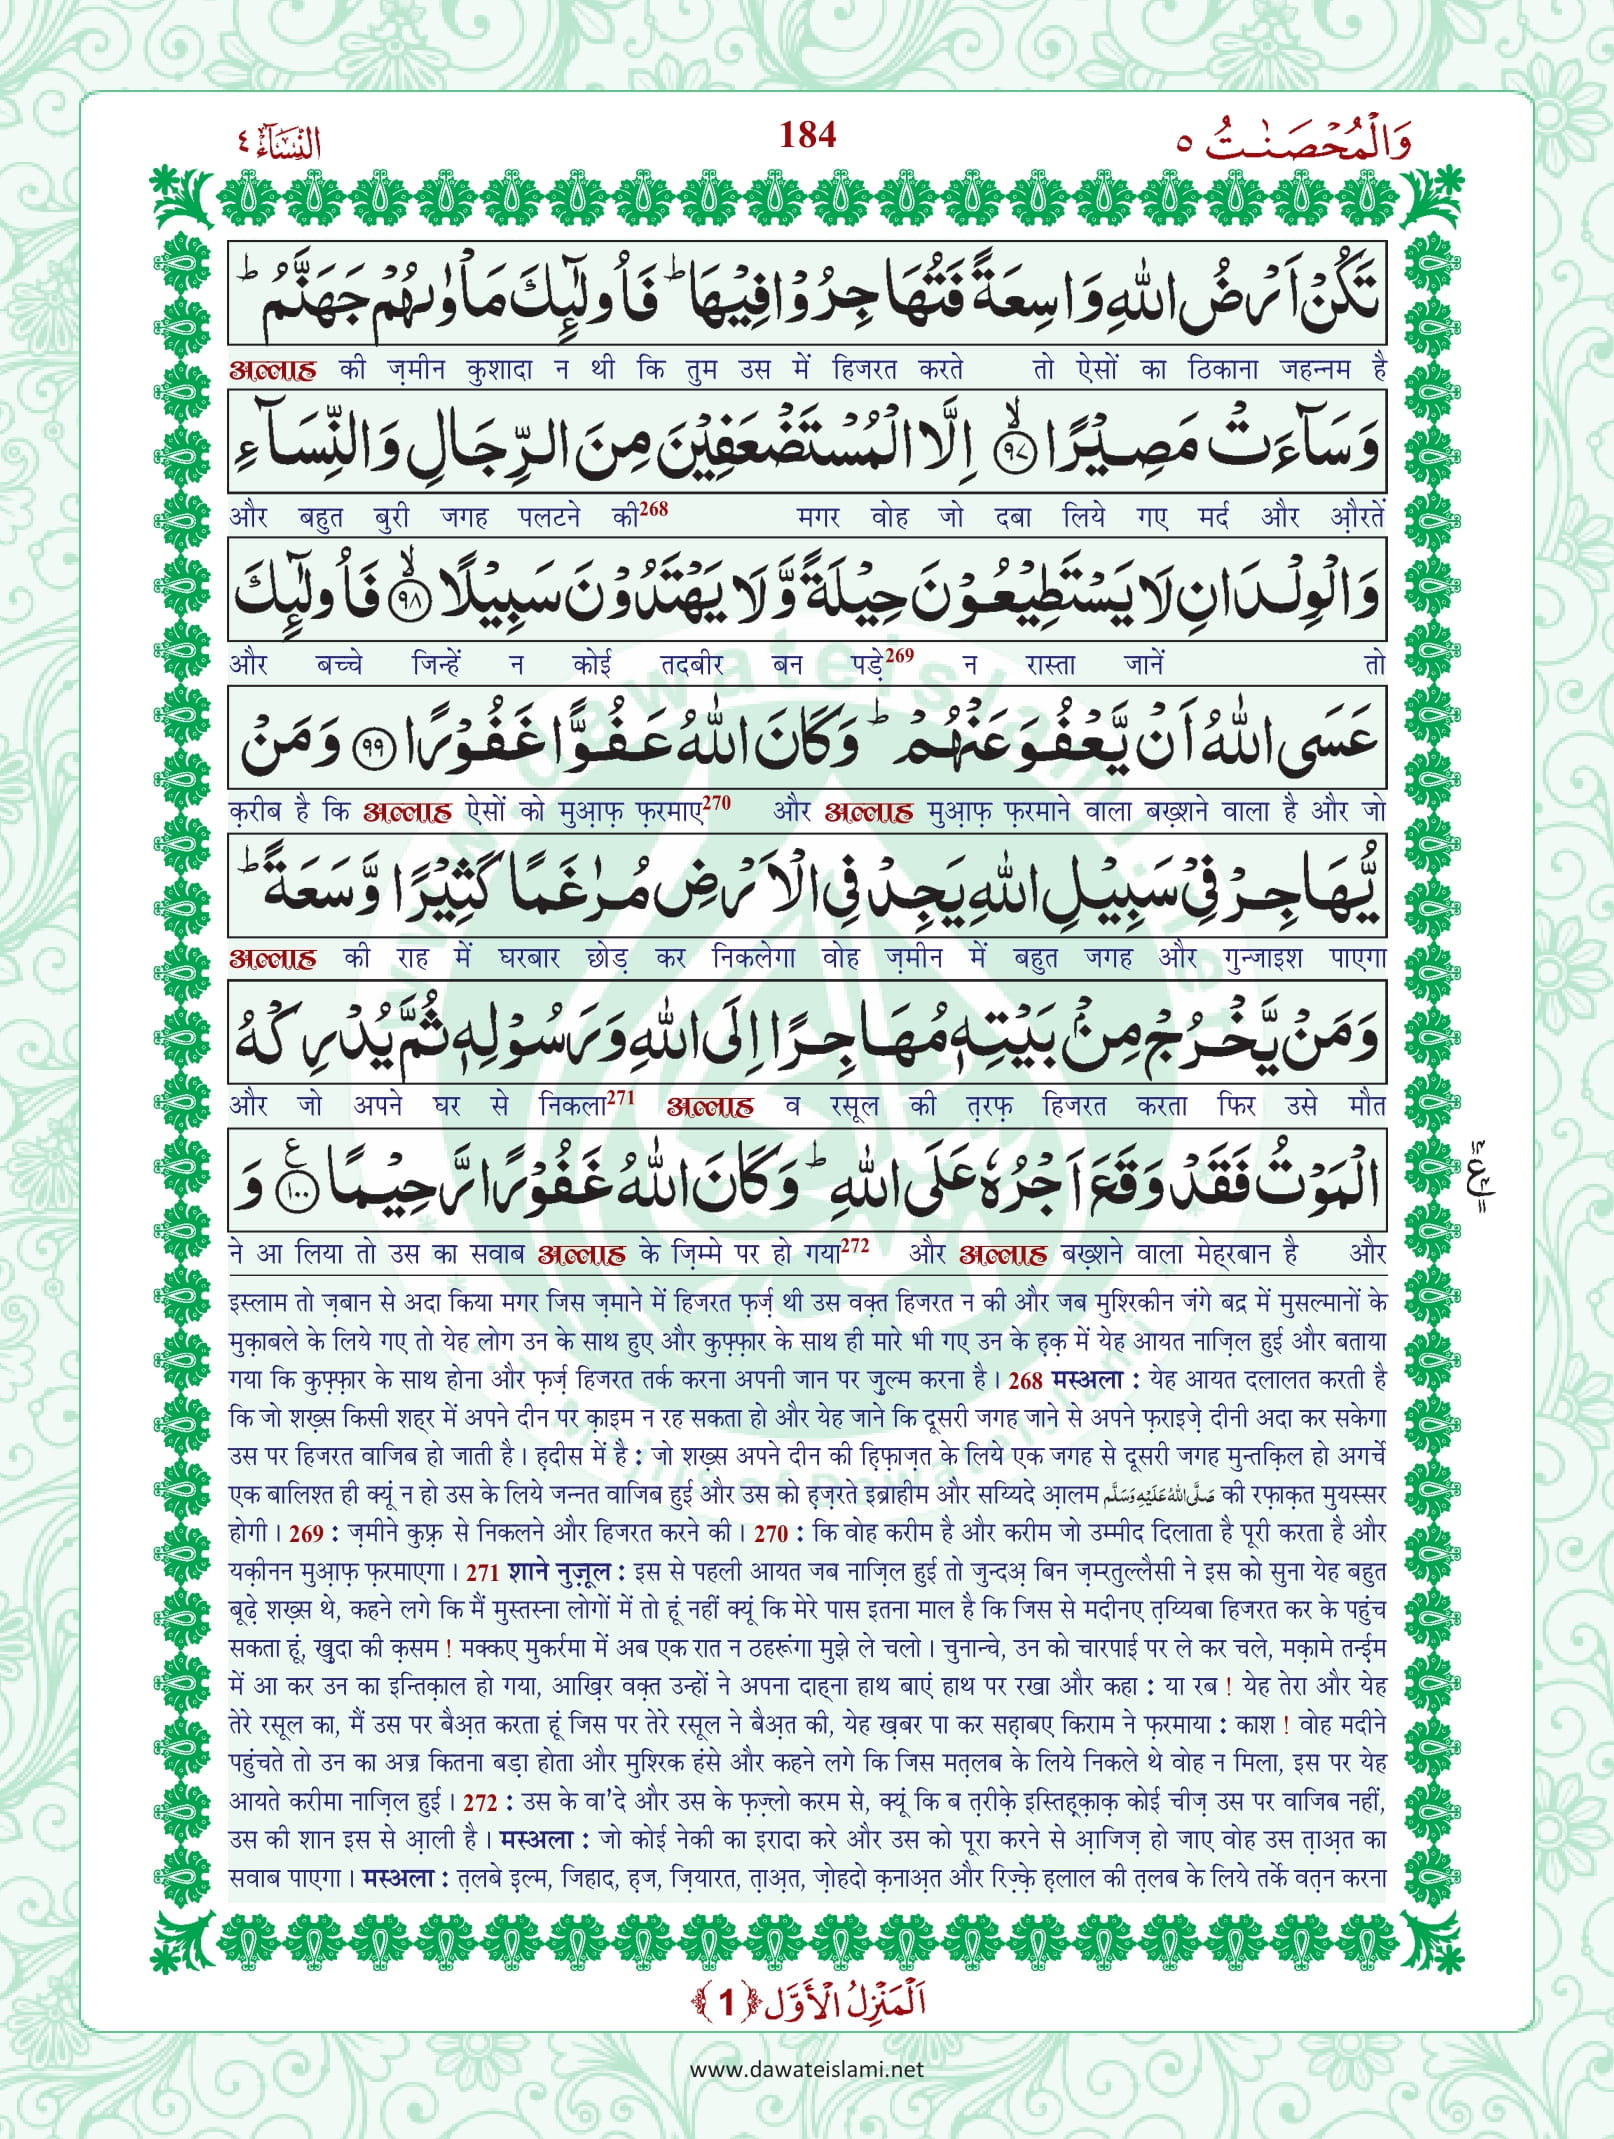 النساء ٤
184
والمحصنت ٥
تَكُنْ اَرْضُ اللّٰهِ وَاسِعَةً فَتُهَاجِرُوْا فِیْهَاؕ فَاُولٰٓىٕكَ مَاْوٰىهُمْ جَهَنَّمُؕ
अल्लाह की ज़मीन कुशादा न थी कि तुम उस में हिजरत करते तो ऐसों का ठिकाना जहन्नम है
وَسَآءَتْ مَصِیْرًاۙ۝۹۷ اِلَّا الْمُسْتَضْعَفِیْنَ مِنَ الرِّجَالِ وَالنِّسَآءِ
और बहुत बुरी जगह पलटने की268 मगर वोह जो दबा लिये गए मर्द और औ़रतें
وَالْوِلْدَانِ لَا یَسْتَطِیْعُوْنَ حِیْلَةً وَّلَا یَهْتَدُوْنَ سَبِیْلًاۙ۝۹۸ فَاُولٰٓىٕكَ
और बच्चे जिन्हें न कोई तदबीर बन पड़े269 न रास्ता जानें तो
عَسَى اللّٰهُ اَنْ یَّعْفُوَ عَنْهُمْؕ وَكَانَ اللّٰهُ عَفُوًّا غَفُوْرًا۝۹۹ وَمَنْ
क़रीब है कि अल्लाह ऐसों को मुआ़फ़ फ़रमाए270 और अल्लाह मुआ़फ़ फ़रमाने वाला बख़्शने वाला है और जो
یُّهَاجِرْ فِیْ سَبِیْلِ اللّٰهِ یَجِدْ فِی الْاَرْضِ مُرٰغَمًا كَثِیْرًا وَّسَعَةًؕ
अल्लाह की राह में घरबार छोड़ कर निकलेगा वोह ज़मीन में बहुत जगह और गुन्जाइश पाएगा
وَمَنْ یَّخْرُجْ مِنْۢ بَیْتِهٖ مُهَاجِرًا اِلَى اللّٰهِ وَرَسُوْلِهٖ ثُمَّ یُدْرِكْهُ
और जो अपने घर से निकला271 अल्लाह व रसूल की त़रफ़ हिजरत करता फिर उसे मौत
الْمَوْتُ فَقَدْ وَقَعَ اَجْرُهٗ عَلَى اللّٰهِؕ وَكَانَ اللّٰهُ غَفُوْرًا رَّحِیْمًا۠۝۱۰۰ وَ
ने आ लिया तो उस का सवाब अल्लाह के ज़िम्मे पर हो गया272 और अल्लाह बख़्शने वाला मेह्‌रबान है और
इस्लाम तो ज़बान से अदा किया मगर जिस ज़माने में हिजरत फ़र्ज़ थी उस वक़्त हिजरत न की और जब मुश्रिकीन जंगे बद्र में मुसल्मानों के
मुक़ाबले के लिये गए तो येह लोग उन के साथ हुए और कुफ़्फ़ार के साथ ही मारे भी गए उन के ह़क़ में येह आयत नाज़िल हुई और बताया
गया कि कुफ़्फ़ार के साथ होना और फ़र्ज़ हिजरत तर्क करना अपनी जान पर ज़ुल्म करना है। 268 मस्अला : येह आयत दलालत करती है
कि जो शख़्स किसी शह्‌र में अपने दीन पर क़ाइम न रह सकता हो और येह जाने कि दूसरी जगह जाने से अपने फ़राइज़े दीनी अदा कर सकेगा
उस पर हिजरत वाजिब हो जाती है। ह़दीस में है : जो शख़्स अपने दीन की ह़िफ़ाज़त के लिये एक जगह से दूसरी जगह मुन्तक़िल हो अगर्चे
एक बालिश्त ही क्यूं न हो उस के लिये जन्नत वाजिब हुई और उस को ह़ज़रते इब्राहीम और सय्यिदे आ़लम صَلَّى اللهُ عَلَيْهِ وَسَلَّم की रफ़ाक़त मुयस्सर
होगी। 269 : ज़मीने कुफ़्र से निकलने और हिजरत करने की। 270 : कि वोह करीम है और करीम जो उम्मीद दिलाता है पूरी करता है और
यक़ीनन मुआ़फ़ फ़रमाएगा। 271 शाने नुज़ूल : इस से पहली आयत जब नाज़िल हुई तो जुन्दअ़ बिन ज़म्रतुल्लैसी ने इस को सुना येह बहुत
बूढ़े शख़्स थे, कहने लगे कि मैं मुस्तस्ना लोगों में तो हूं नहीं क्यूं कि मेरे पास इतना माल है कि जिस से मदीनए त़य्यिबा हिजरत कर के पहुंच
सकता हूं, खु़दा की क़सम ! मक्कए मुकर्रमा में अब एक रात न ठहरूंगा मुझे ले चलो। चुनान्चे, उन को चारपाई पर ले कर चले, मक़ामे तन्ई़म
में आ कर उन का इन्तिक़ाल हो गया, आख़िर वक़्त उन्हों ने अपना दाह्‌ना हाथ बाएं हाथ पर रखा और कहा : या रब ! येह तेरा और येह
तेरे रसूल का, मैं उस पर बैअ़त करता हूं जिस पर तेरे रसूल ने बैअ़त की, येह ख़बर पा कर सह़ाबए किराम ने फ़रमाया : काश ! वोह मदीने
पहुंचते तो उन का अज्र कितना बड़ा होता और मुश्रिक हंसे और कहने लगे कि जिस मत़लब के लिये निकले थे वोह न मिला, इस पर येह
आयते करीमा नाज़िल हुई। 272 : उस के वा'दे और उस के फ़ज़्लो करम से, क्यूं कि ब त़रीक़े इस्तिह़्क़ाक़ कोई चीज़ उस पर वाजिब नहीं,
उस की शान इस से आ़ली है। मस्अला : जो कोई नेकी का इरादा करे और उस को पूरा करने से आ़जिज़ हो जाए वोह उस त़ाअ़त का
सवाब पाएगा। मस्अला : त़लबे इ़ल्म, जिहाद, ह़ज, ज़ियारत, त़ाअ़त, ज़ोहदो क़नाअ़त और रिज़्क़े ह़लाल की त़लब के लिये तर्के वत़न करना
اَلْمَنْزِلُ الْاَوَّل ﴿1﴾
www.dawateislami.net